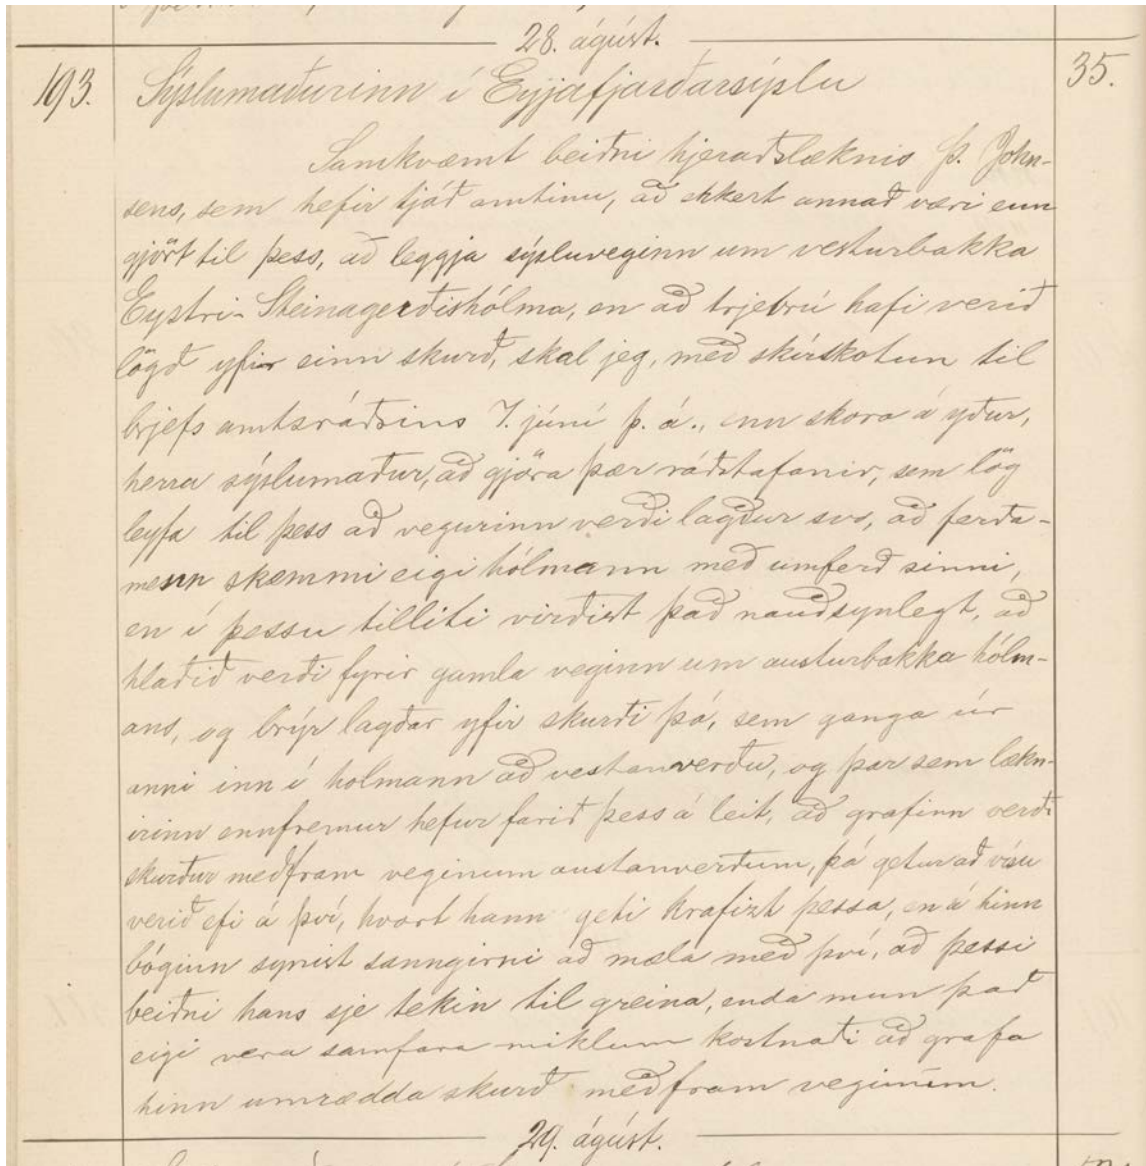 28. ágúst.
193. Sýslumaðurinn í Eyjafjarðarsýslu 35.
Samkvæmt beiðni hjeraðslæknis Þ. John-
sens, sem hefir tjáð amtinu, að ekkert annað væri enn
gjört til þess, að leggja sýsluveginn um vesturbakka
Eystri-Steinagerðishólma, en að trjebrú hafi verið
lögð yfir einn skurð, skal jeg, með skírskotun til
brjefs amtsráðsins 7. júní þ. á., enn skora á yður,
herra sýslumaður, að gjöra þær ráðstafanir, sem lög
leyfa til þess að vegurinn verði lagður svo, að ferða-
menn skemmi eigi hólmann með umferð sinni,
en í þessu tilliti virðist það nauðsynlegt, að
hlaðið verði fyrir gamla veginn um austurbakka hólm-
ans, og brýr lagðar yfir skurði þá, sem ganga úr
ánni inn í hólmann að vestanverðu, og þar sem lækn-
irinn ennfremur hefur farið þess á leit, að grafinn verði
skurður meðfram veginum austanverðum, þá getur að vísu
verið efi á því, hvort hann geti krafizt þessa, en á hinn
bóginn synist sanngirni að mæla með því, að þessi
beiðni hans sje tekin til greina, enda mun það
eigi vera samfara miklum kostnaði að grafa
hinn umrædda skurð meðfram veginum.
29. ágúst.